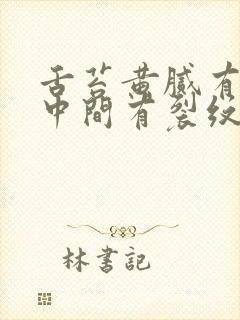 舌苔黄腻有
中间有裂纹
林書記